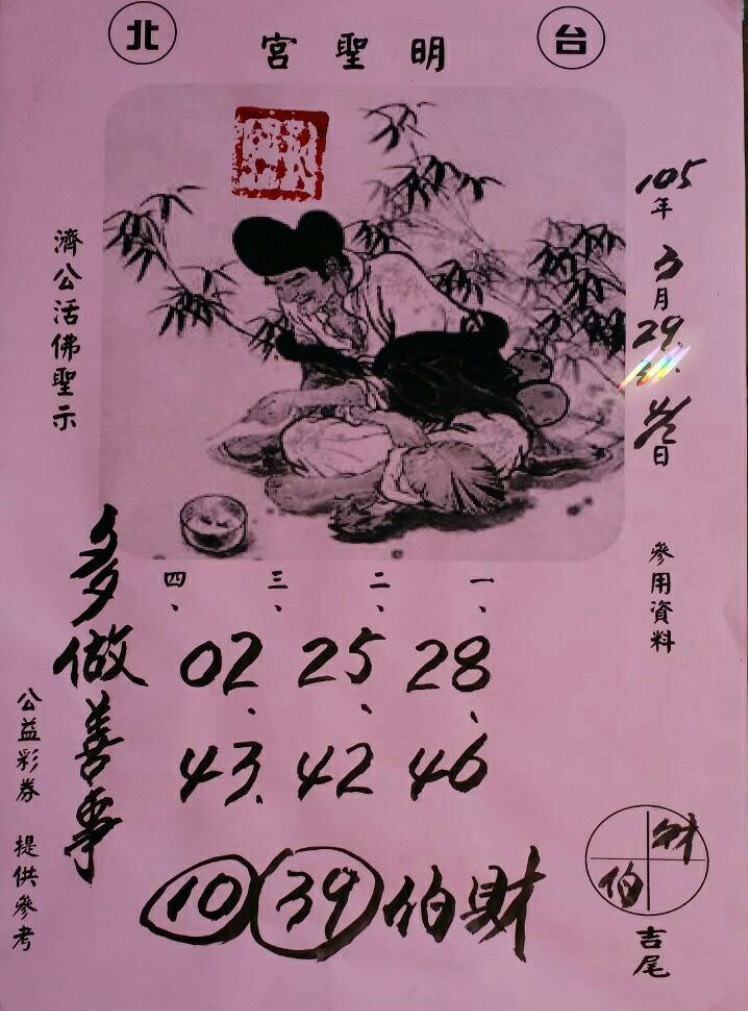 台北
明聖宮
105年
3月
29.
31.
日
參用資料
濟公活佛聖示
一、
28、46
二、
25、42
三、
02、43.
四、
多做善事
10 39 伯財
財
伯
吉尾
公益彩券 提供參考